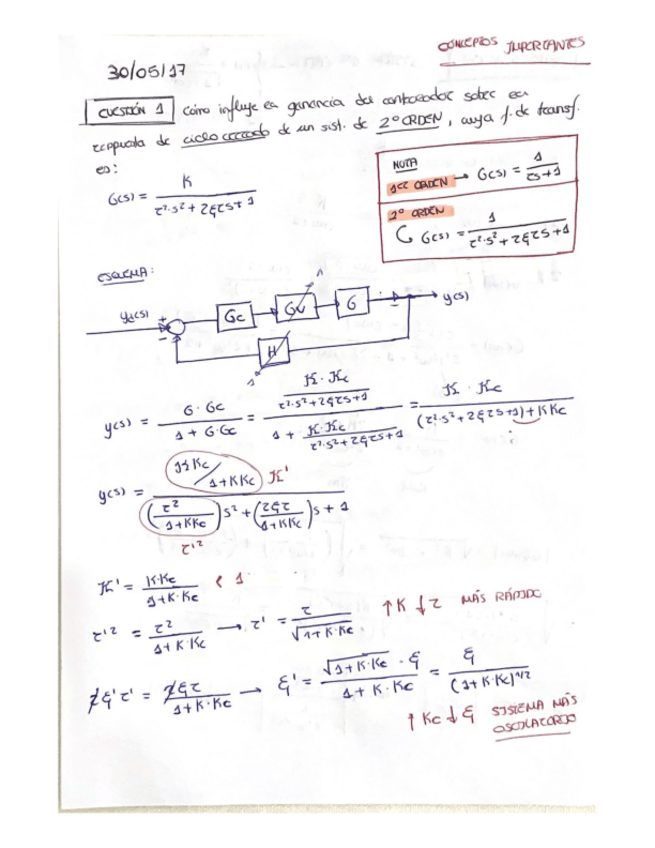 CONCEPTOS IMPORTANTES
30/05/17
CUESTIÓN 1 Cómo influye la ganancia del controlador sobre la
respuesta de ciclo cerrado de un sist. de 2º ORDEN, cuya f. de transf.
es:
G(s) = K / (τ²·s² + 2ξτs + 1)
NOTA
1er ORDEN → G(s) = 1 / (τs + 1)
2º ORDEN
G(s) = 1 / (τ²·s² + 2ξτs + 1)
ESQUEMA:
+ - Gc Gv 1 G y(s)
H 1
y(s) = G·Gc / (1 + G·Gc) = (K·Kc / (τ²·s² + 2ξτs + 1)) / (1 + K·Kc / (τ²·s² + 2ξτs + 1)) = K·Kc / ((τ²·s² + 2ξτs + 1) + KKc)
y(s) = (KKc / 1 + KKc) K' / ((τ² / 1 + KKc)s² + (2ξτ / 1 + KKc)s + 1)
τ'²
K' = K·Kc / (1 + K·Kc) < 1
τ'² = τ² / (1 + K·Kc) → τ' = τ / √(1 + K·Kc) ↑K ↓τ MÁS RÁPIDO
2ξ'τ' = 2ξτ / (1 + K·Kc) → ξ' = √(1 + K·Kc) · ξ / (1 + K·Kc) = ξ / (1 + K·Kc)^1/2
↑Kc ↓ξ SISTEMA MÁS
OSCILATORIO